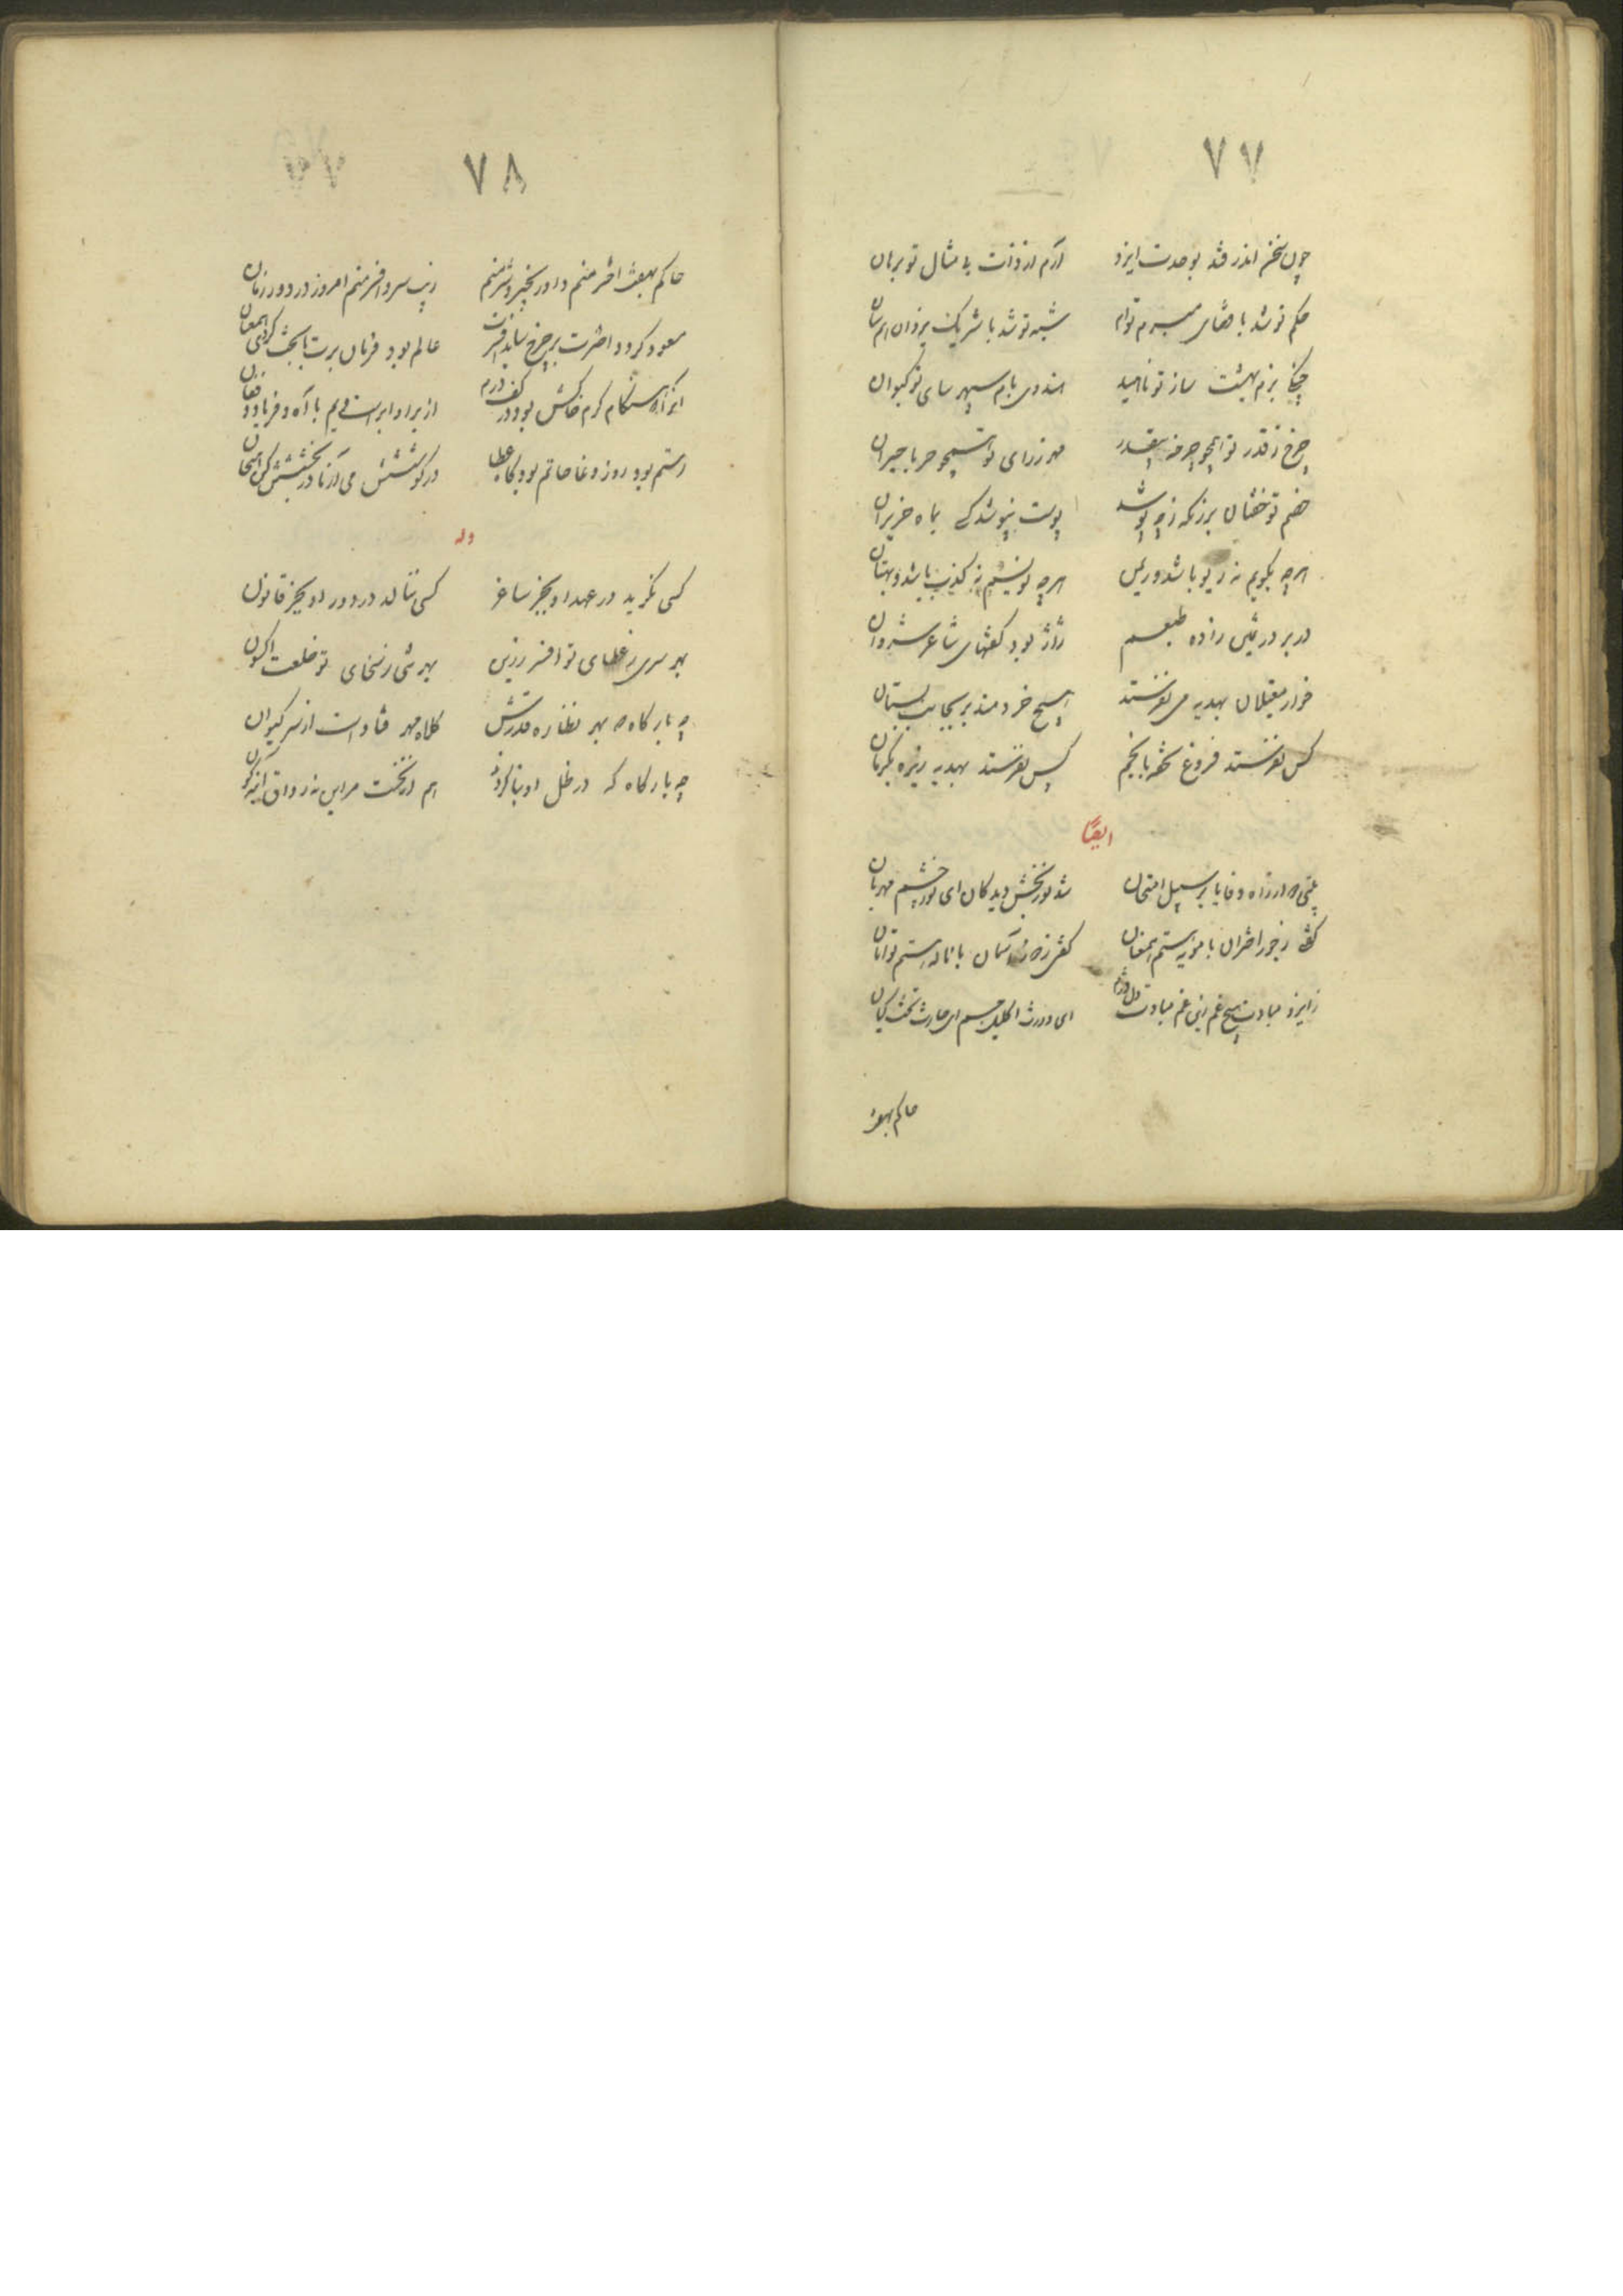 ۷۷
چون سخن اندر فتد بوحدت ایزد آرم از ذات بی مثال تو برهان
حکم تو شد با قضای مبرم توام شبه تو شد با شریک یزدان
بزم بهشت ساز تو ناهید هندوی بام سپهر سای تو کیوان
چرخ ز قدر تو همچو چرخ مهر ز رای تو همچو حربا حیران
خصم تو خفتان برزنکه پوشد پوست نپوشد کسی بماه حزیران
هرچه بگویم نه ریو باشد و ریمن هرچه نویسم نه کذب باشد و بهتان
در بر در ثمین زاده طبعم ژاژ بود گفتهای شاعر شروان
خوار مغیلان بهدیه می نفرستند هیچ خردمند بر بجانب بستان
کس نفرستد فروغ بانجم کس نفرستد بهدیه زیره بکرمان
ایضاً
از راه وفا یا بر سبیل امتحان شد نوربخش دیدگان ای نور چشم مهربان
ز جور اختران با مویه استم همعنان آسمان با ناله استم توامان
ز ایزد مبادت هیچ غم این غم مبادت دل دژم ای وارث اکلیل جم ای حارث تخت کیان
حاکم بهفت
۷۸
حاکم بهفت اختر منم داور بخیر و شر منم زیب سر و افسر منم امروز در دور زمان
مسعود گردد اخترت بر چرخ ساید افسرت عالم بود فرمان برت با بخت گردی همعنان
هنگام کرم خاکش بود در کف درم از بر او ابر است و یم با آه و فریاد و فغان
رستم بود روز وغا حاتم بود گاه عطا در کوشش می آزما در بخشش کن امتحان
وله
کسی نگرید در عهد او بجز ساغر کسی ننالد در دور او بجز قانون
بهر سری ز عطای تو افسر زرین بهر تنی ز سخای تو خلعت اکسون
چه بارگاه که بهر نظاره قدرش کلاه مهر فتاد است از سر کیوان
چه بارگاه که در ظل او بنا کردند هم از نخست مر این نه رواق